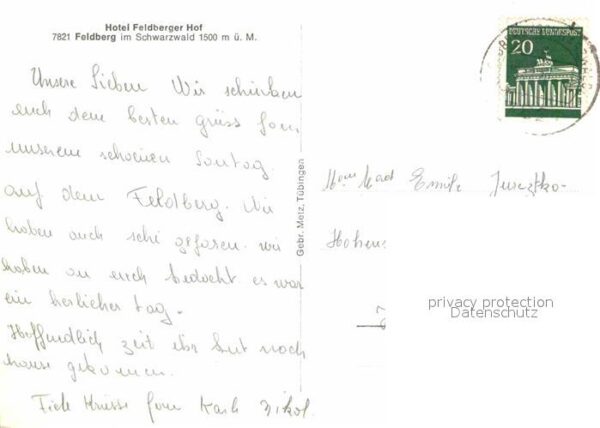 Hotel Feldberger Hof
7821 Feldberg im Schwarzwald 1500 m ü. M.
Unsere Lieben Wir schicken
euch dem besten grüss fom
unserem schoenen Sontag
auf dem Feldberg. Wir
haben auch schi gefaren. wir
haben an euch gedacht es war
ein herlicher tag.
Hoffendlich zeit ihr gut nach
hause gekommen.
Fiele Küsse fom Karl
Gebr. Metz, Tübingen
DEUTSCHE BUNDESPOST
20
Emile
privacy protection
Datenschutz